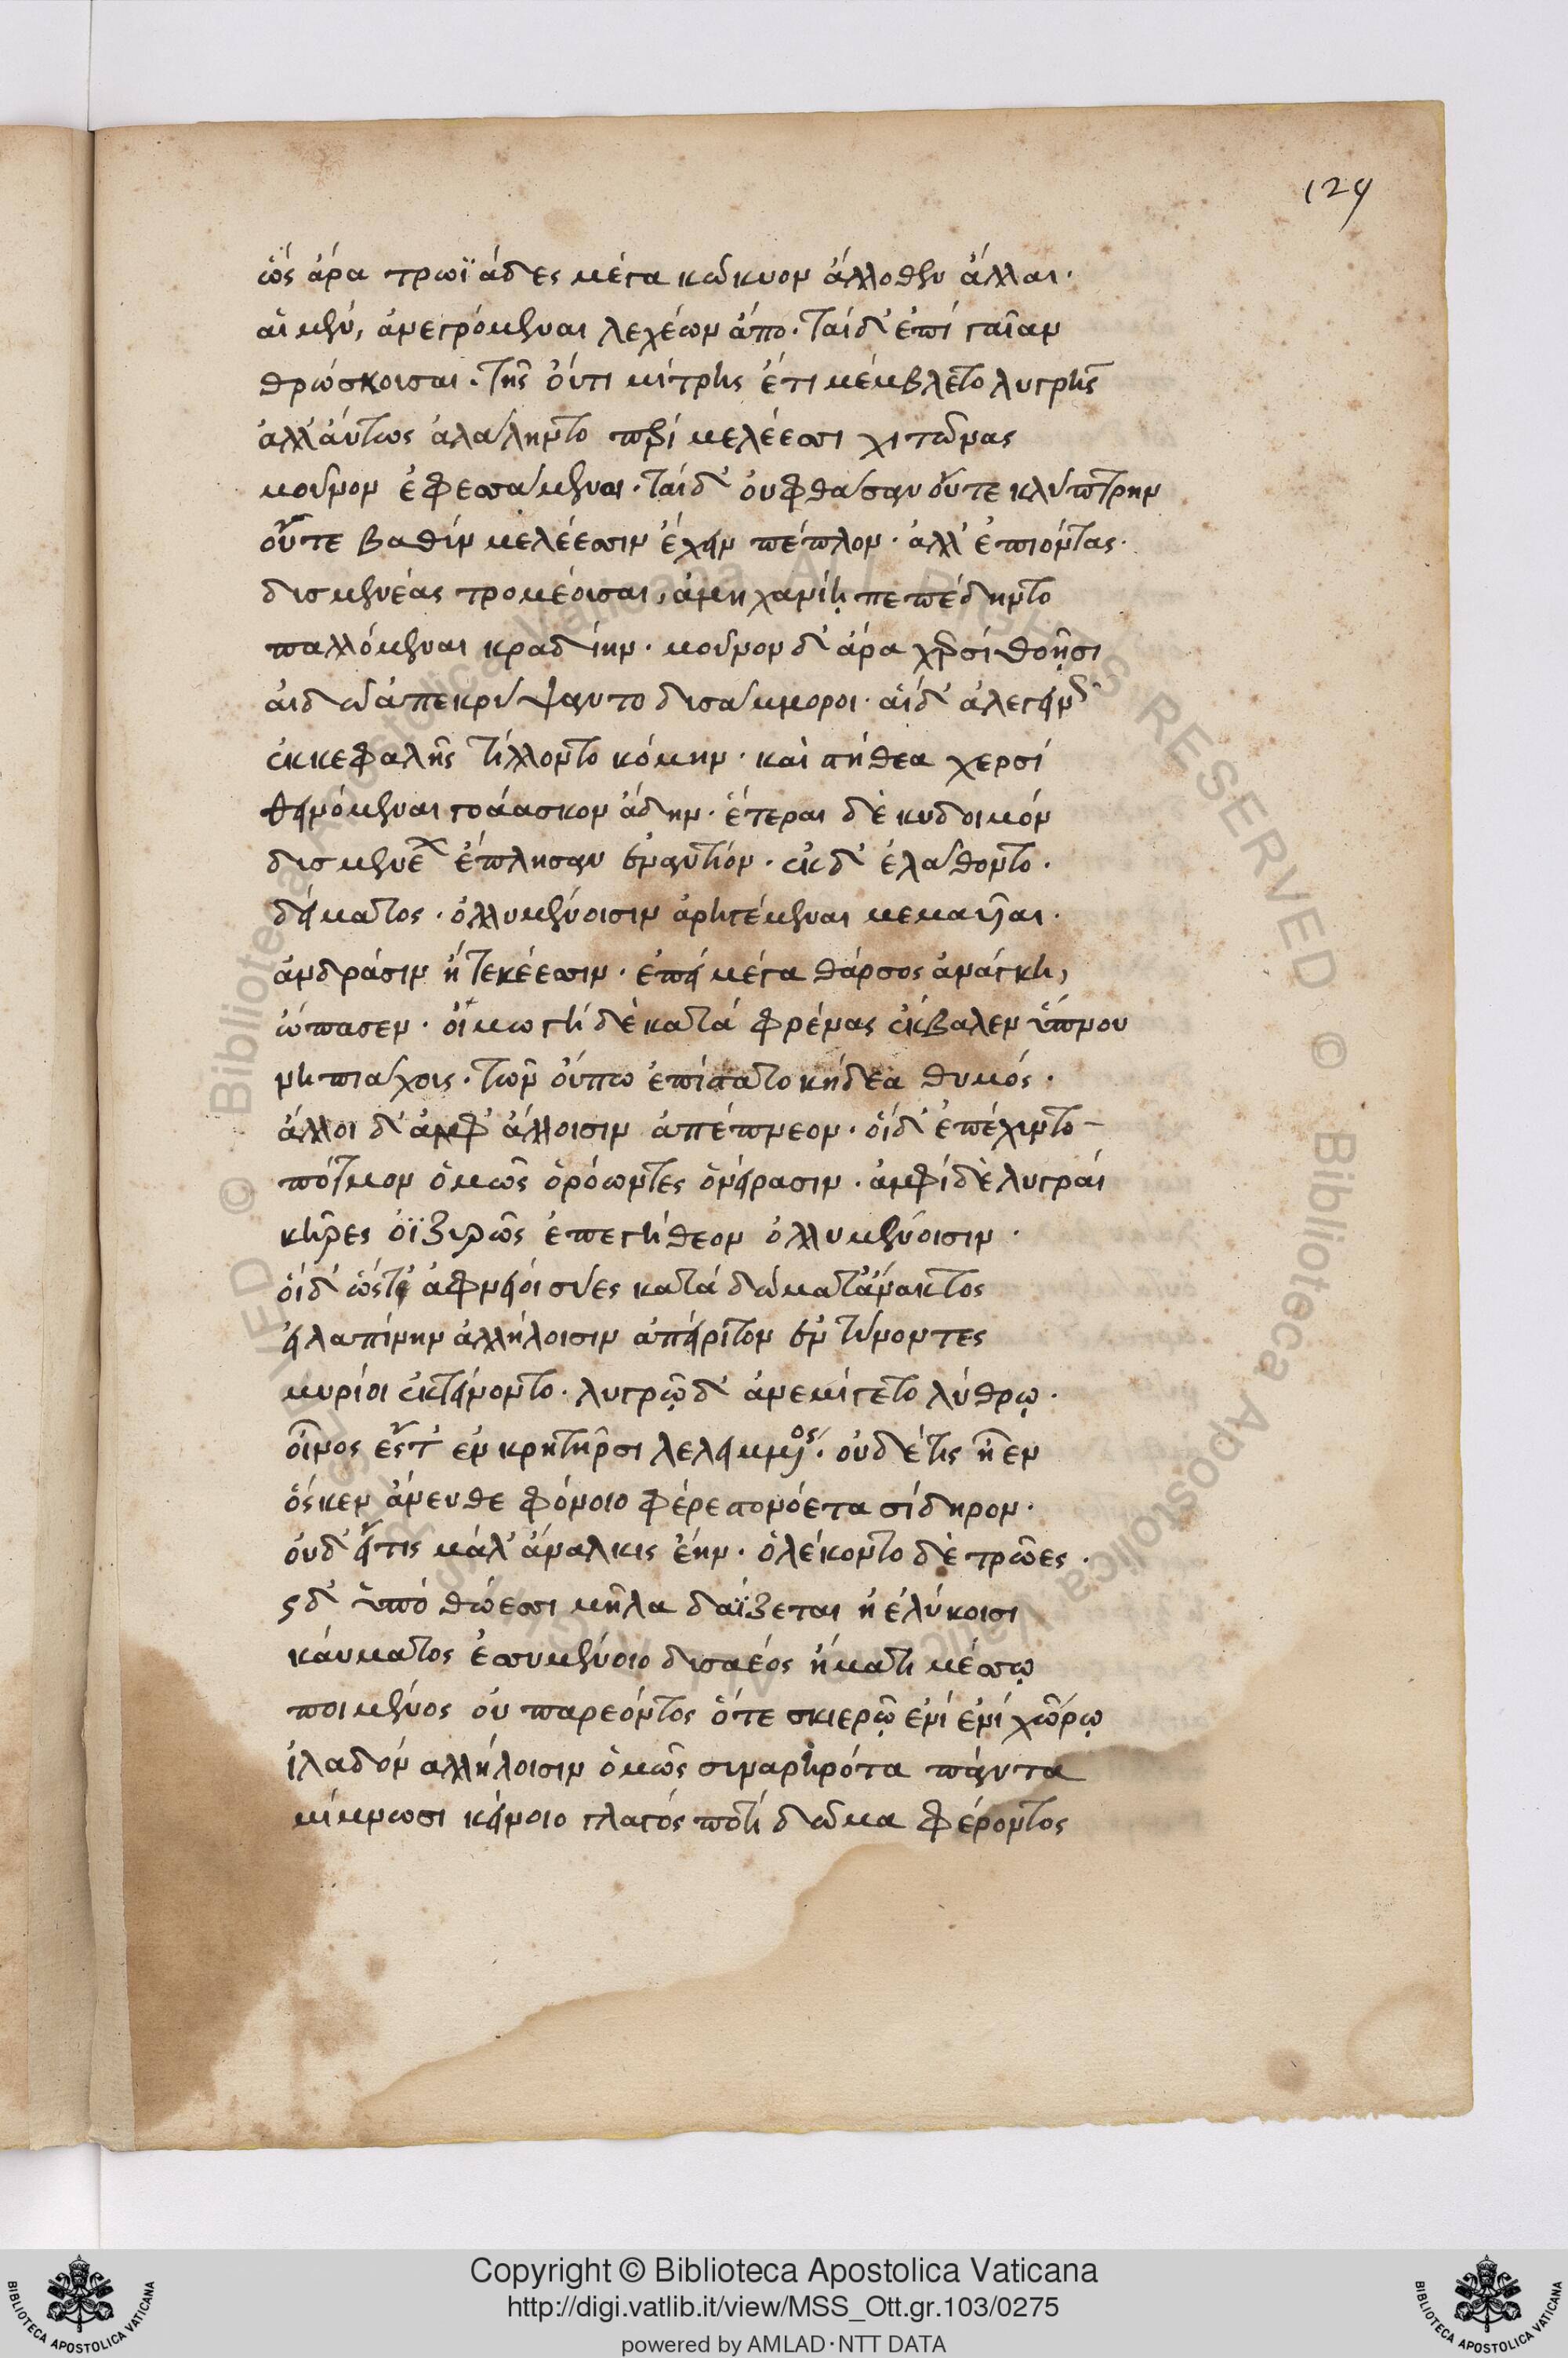 129
ὥς ἄρα τρωϊάδες μέγα κώκυον ἄλλοθεν ἄλλαι·
αἱ μὲν, ἀνεγρόμεναι λεχέων ἄπο· ταὶ δ' ἐπὶ γαῖαν
θρώσκουσαι· τῆς οὔτι μίτρης ἔτι μέμβλετο λυγρῆς
ἀλλ' αὕτως ἀλάληντο περὶ μελέεσσι χιτῶνας
μοῦνον ἐφεσσάμεναι· ταὶ δ' οὐ φθάσαν οὔτε κλύπτρην
οὔτε βαθὺν μελέεσσιν ἔχειν πέπλον· ἀλλ' ἐπιόντας·
δυσμενέας τρομέουσαι, ἀμηχανίῃ πεπέδηντο
παλλόμεναι κραδίην· μοῦνον δ' ἄρα χερσὶ θοῇσι
αἰδῶ ἀπεκρύψαντο δυσάμμοροι· αἱ δ' ἀλεγεινῶς
ἐκ κεφαλῆς τίλλοντο κόμην· καὶ στήθεα χερσὶ
θεινόμεναι γοάασκον ἄδην· ἕτεραι δὲ κυδοιμὸν
δυσμενέων ἔπλησαν ἐναντίον· ἐκ δ' ἐλάθοντο·
δείματος· ὀλλυμένοισιν ἀρηγέμεναι μεμαυῖαι·
ἀνδράσιν ἢ τεκέεσσιν· ἐπεὶ μέγα θάρσος ἀνάγκη,
ὤπασεν· οἰμωγὴ δὲ κατὰ φρένας ἔκβαλεν ὕπνου
νηπιάχοις· τῶν οὔπω ἐπίστατο κήδεα θυμός·
ἄλλοι δ' ἀμφ' ἄλλοισιν ἀπέπνεον· οἱ δ' ἐπέχυντο
πότμον ὁμῶς ὁρόωντες ὀνείρασιν· ἀμφὶ δὲ λυγραὶ
κῆρες ὀϊζυρῶς ἐπεγήθεον ὀλλυμένοισιν·
οἱ δ' ὥς τε ἀφνειοὶ σύες κατὰ δώματ' ἄνακτος
εἰλαπίνην ἀλλήλοισιν ἀπείριτον ἐντύνοντες
μυρίοι ἐκτείνοντο· λυγρῷ δ' ἀνεμίγετο λύθρῳ·
οἶνος ἔστ' ἐν κρητῆρσι λελειμμένος· οὐδέ τις ἦεν
ὅς κεν ἄνευθε φόνοιο φέρε στονόεντα σίδηρον·
οὐδ' εἴ τις μάλ' ἄναλκις ἔην· ὀλέκοντο δὲ τρῶες·
ς δ' ὑπὸ θώεσσι μῆλα δαΐζεται ἠὲ λύκοισι
καύματος ἐσσυμένοιο δυσαέος ἤματι μέσσῳ
ποιμένος οὐ παρεόντος ὅτε σκιερῷ ἐνὶ ἐνὶ χώρῳ
ἰλαδὸν ἀλλήλοισιν ὁμῶς συναρηρότα πάντα
μίμνωσι κείνοιο γλάγος ποτὶ δῶμα φέροντος
Copyright © Biblioteca Apostolica Vaticana
http://digi.vatlib.it/view/MSS_Ott.gr.103/0275
powered by AMLAD·NTT DATA